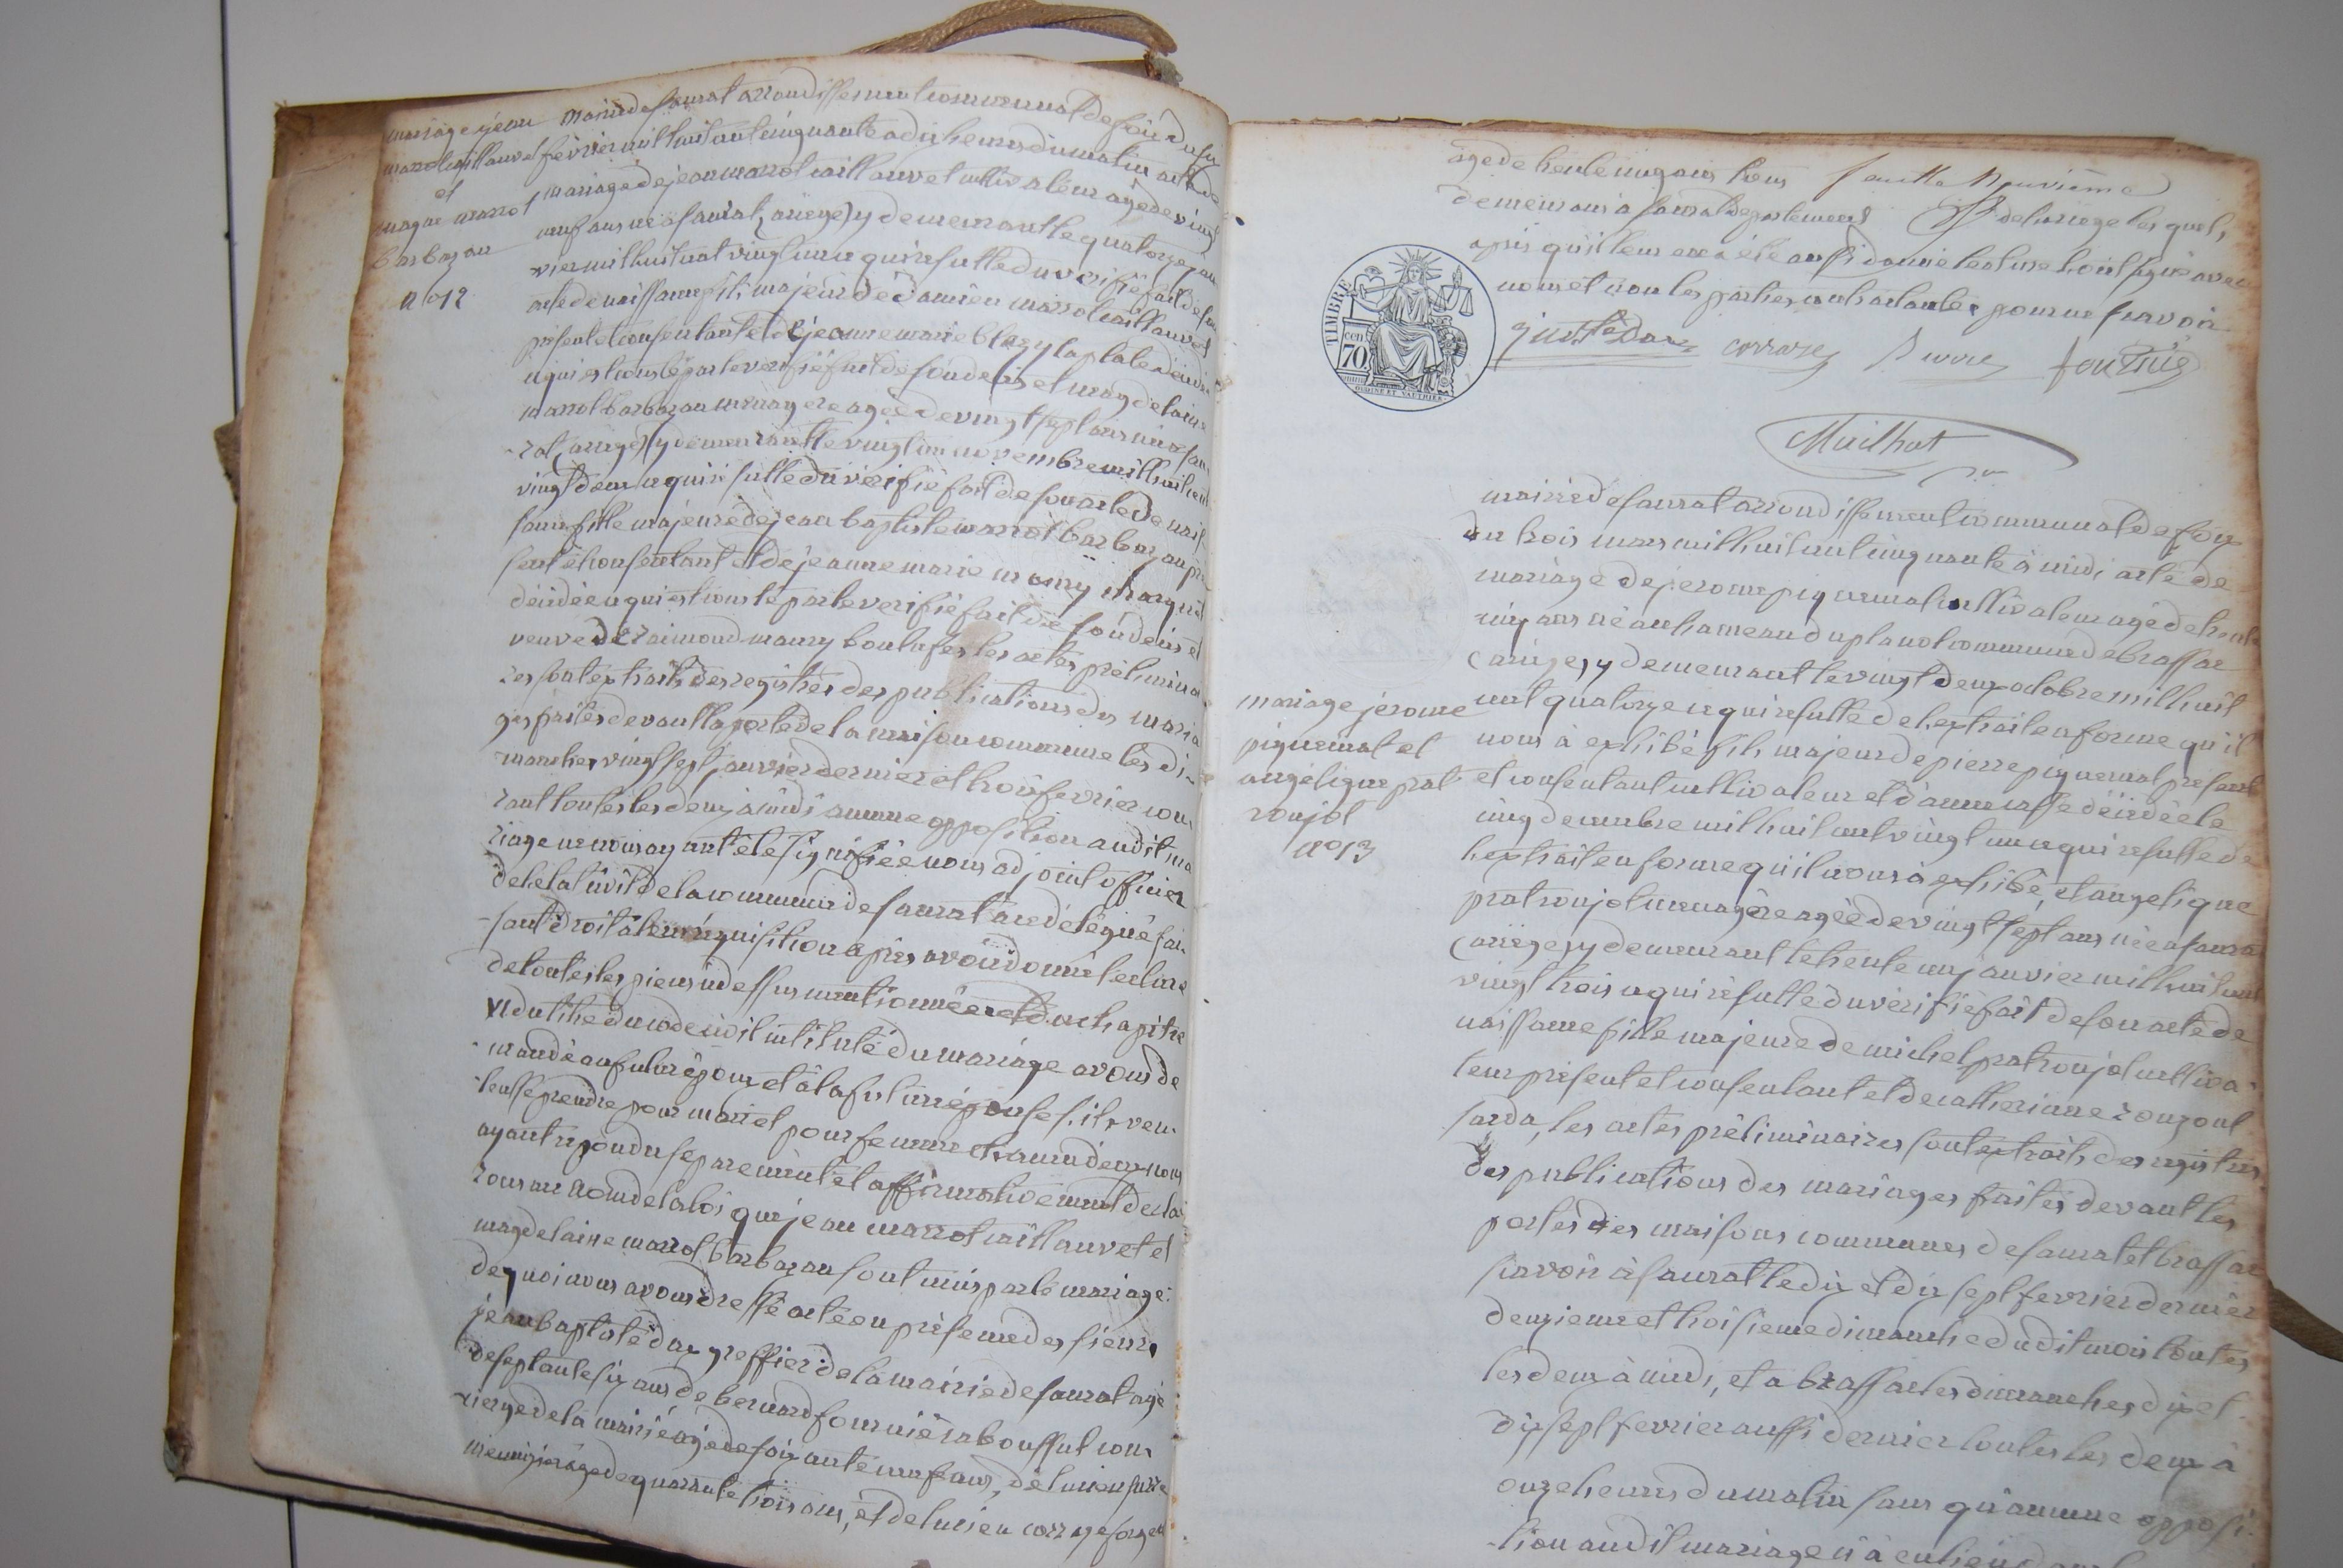 mariage jean
marrot caillauvet
et
magne marrot
barbazan
n° 12
mairie de saurat arrondissement communal de foix du six
février mil huit cent cinquante a dix heures du matin acte de
mariage de jean marrot caillauvet cultivateur agé de vingt
neuf ans né a saurat (ariege) y demeurant le quatorze jan
vier mil huit cent vingt un ce qui resulte du verifié fait de son
acte de naissance fils majeur de damien marrot caillauvet
présent et consentant et de jeanne marie blazy laplate décédée
ce qui est consté par le verifié fait de son deces et magdelaine
marrot barbazan menagere agée de vingt sept ans née a sau
rat (ariege) y demeurant le vingt un novembre mil huit cent
vingt deux ce qui resulte du vérifié fait de son acte de nais
sance fille majeure de jean baptiste marrot barbazan pré
sent et consentant et de jeanne marie maury
décédée ce qui est consté par le verifié fait de son deces et
veuve de raimond maury boulafes les actes prélimina
res sont extraits des registres des publications des maria
ges faites devant la porte de la maison commune les di
manches vingt sept janvier dernier et trois fevrier cou
rant toutes les deux à midi aucune opposition audit ma
riage ne nous ayant été signifiée nous adjoint officier
de letat civil de la commune de saurat a ce délégué fai
sant droit à leur réquisition apres avoir donné lecture
de toutes les pieces ci dessus mentionnées et du chapitre
VI du titre du code civil intitulé du mariage avons de
mandé au futur époux et à la future épouse s'ils veu
lent se prendre pour mari et pour femme chacun deux nous
ayant répondu séparement et affirmativement decla
rons au nom de la loi que jean marrot caillauvet et
magdelaine marrot barbazan sont unis par le mariage.
de quoi nous avons dressé acte en présence des sieurs
jean baptiste dax greffier de la mairie de saurat agé
de septante six ans, de bernard fournié labouffut con
cierge de la mairie agé de soixante neuf ans, de lucien
menuisier agé de quarante trois ans, et de lucien corraze forgeur
agé de trente cinq ans tous feuille Neuvième
demeurans a saurat departement de l'ariege les quels
après qu'il leur en a été aussi donné lecture l'ont signé avec
nous et non les parties contractantes pour ne savoir
TIMBRE
70 cen
corraze fournié
Mailhat
mariage jérome
piquemal et
angélique prat
roujol
n° 13
mairie de saurat arrondissement communal de foix
du trois mars mil huit cent cinquante à midi acte de
mariage de jerome piquemal cultivateur agé de trente
cinq ans né au hameau du planol commune de brassac
(ariege) y demeurant le vingt deux octobre mil huit
cent quatorze ce qui resulte de l'extrait en forme qu'il
nous à exhibé fils majeur de pierre piquemal présent
et consentant cultivateur et d'anne casse décédée le
cinq decembre mil huit cent vingt un ce qui resulte de
l'extrait en forme qu'il nous à exhibé, et angelique
prat roujol menagère agée de vingt sept ans née a saurat
(ariege) y demeurant le trente un janvier mil huit cent
vingt trois ce qui résulte du vérifié fait de son acte de
naissance fille majeure de michel prat roujol cultiva
teur présent et consentant et de catherianne rouzoul
sarda, les actes préliminaires sont extraits des registres
des publications des mariages faites devant les
portes des maisons communes de saurat et brassac
savoir à saurat le dix et dix sept fevrier dernier
deuxieme et troisieme dimanche dudit mois toutes
les deux à midi, et a brassac les dimanches dix et
dix sept fevrier aussi dernier toutes les deux à
onze heures du matin sans qu'aucune opposi
tion audit mariage